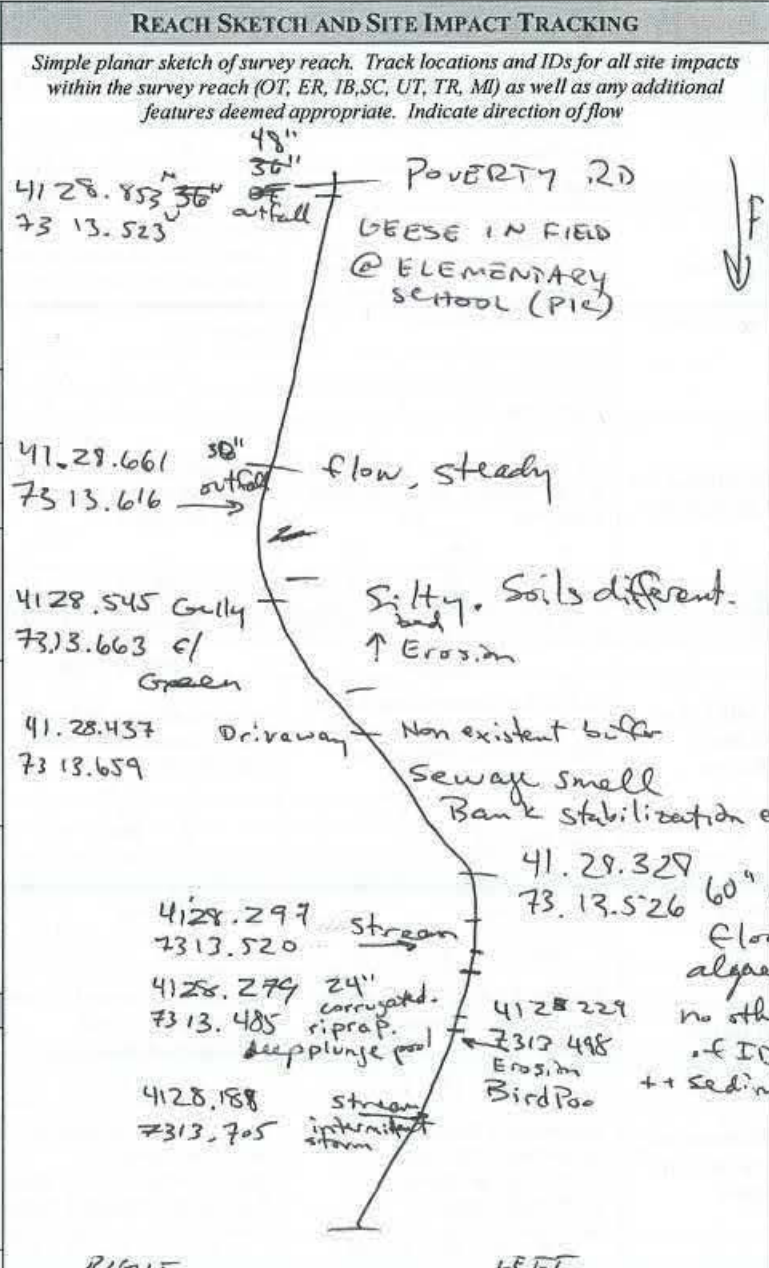 REACH SKETCH AND SITE IMPACT TRACKING
Simple planar sketch of survey reach. Track locations and IDs for all site impacts
within the survey reach (OT, ER, IB,SC, UT, TR, MI) as well as any additional
features deemed appropriate. Indicate direction of flow
48"
36"
4128.853 N 36" POVERTY RD
73 13.523 outfall
F
GEESE IN FIELD
@ ELEMENTARY
SCHOOL (PIC)
41.28.661 outfall flow, steady
73 13.616
4128.545 Gully Silty. Soils different.
bed
73.13.663 ↑ Erosion
Green
41.28.437 Driveway Non existent buffer
73 13.659
Sewage smell
Bank stabilization
41.28.328 60"
73.13.526
4128.297 stream
7313.520
algae
4128.279 24"
corrugated.
7313.485 riprap.
deep plunge pool
4128 229 no
7313 498
Erosion
BirdPoo ++
4128.188 stream
7313.705 intermittent
storm
RIGHT LEFT